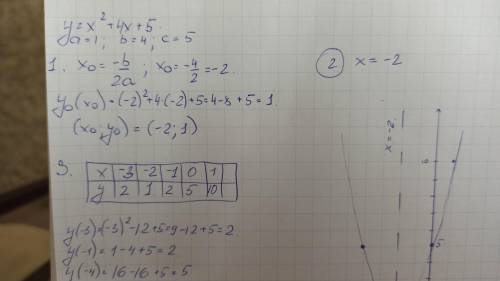 y = x² + 4x + 5
a = 1; b = 4; c = 5
1. x₀ = -b/2a ; x₀ = -4/2 = -2.
y₀(x₀) = (-2)² + 4·(-2) + 5 = 4 - 8 + 5 = 1.
(x₀; y₀) = (-2; 1)
3.
x -3 -2 -1 0 1
y 2 1 2 5 10
y(-3) = (-3)² - 12 + 5 = 9 - 12 + 5 = 2.
y(-1) = 1 - 4 + 5 = 2
y(-4) = 16 - 16 + 5 = 5
2 x = -2
x = -2
5